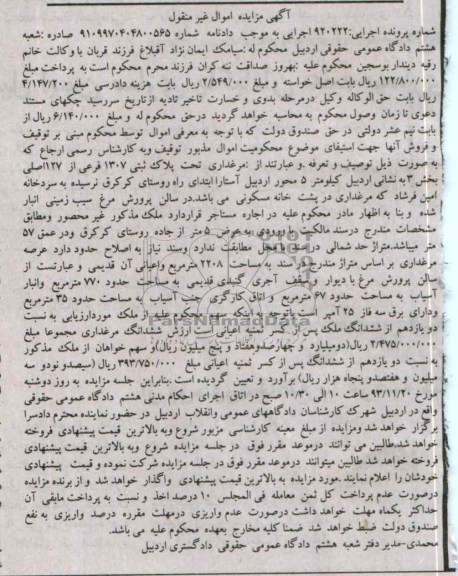 آگهی مزایده اموال غیر منقول
شماره پرونده اجرایی:۹۲۰۲۲۲ اجرایی به موجب دادنامه شماره ۹۱۰۹۹۷۰۴۰۴۸۰۰۵۶۵ صادره :شعبه
هشتم دادگاه عمومی حقوقی اردبیل محکوم له :سیامک ایمان نژاد آقبلاغ فرزند قربان با وکالت خانم
رقیه دیندار بوسجین محکوم علیه :بهروز صداقت ننه کران فرزند محرم محکوم است به پرداخت مبلغ
۱۲۲/۸۰۰/۰۰۰ ریال بابت اصل خواسته و مبلغ ۲/۵۴۹/۰۰۰ ریال بابت هزینه دادرسی مبلغ ۴/۱۴۷/۲۰۰
ریال بابت حق الوکاله وکیل درمرحله بدوی و خسارت تاخیر تادیه ازتاریخ سررسید چکهای مستند
دعوی تا زمان وصول محکوم به محاسبه خواهد گردید درحق محکوم له و مبلغ ۶/۱۴۰/۰۰۰ ریال از
بابت نیم عشر دولتی در حق صندوق دولت که با توجه به معرفی اموال توسط محکوم مبنی بر توقیف
و فروش آنها جهت استیفای موضوع محکومیت اموال مذبور توقیف وبه کارشناس رسمی ارجاع که
به صورت ذیل توصیف و تعرفه .و عبارتند از :مرغداری تحت پلاک ثبتی ۱۳۰۷ فرعی از ۱۲۷اصلی
بخش ۳ به نشانی اردبیل کیلومتر ۵ محور اردبیل آستارا ابتدای راه روستای کرکرق نرسیده به سردخانه
امین فرشاد که مرغداری در پشت خانه مسکونی می باشد.در سالن پرورش مرغ سیب زمینی انبار
شده و بنا به اظهار مادر محکوم علیه در اجاره مستاجر قراردارد ملک مذکور غیر محصور ومطابق
مشخصات مندرج درسند مالکیت با ورودی به عرض ۵ متر از جاده روستای کرکرق ودر عمق ۵۷
متر میباشد.متراژ حد شمالی در سند با محل مطابقت ندارد وسند نیاز به اصلاح حدود دارد عرصه
مرغداری بر اساس متراژ مندرج درسند به مساحت ۲۲۰۸ مترمربع واعیانی آن قدیمی و عبارتست از
سالن پرورش مرغ با دیوار و سقف آجری گنبدی قدیمی به مساحت حدود ۷۷۰ مترمربع وانبار
آسیاب به مساحت حدود ۶۷ مترمربع و اتاق کارگری جنب آسیاب به مساحت حدود ۳۵ مترمربع
ودارای برق سه فاز ۲۵ آمپر است باتوجه به اینکه سهم محکوم علیه از ملک موردارزیابی به نسبت
دو یازدهم از ششدانگ ملک پس از کسر ثمنیه اعیانی است ارزش ششدانگ مرغداری مجموعا مبلغ
۲/۴۷۵/۰۰۰/۰۰۰ ریال(دومیلیارد و چهارصدوهفتاد و پنج میلیون ریال)و سهم خواهان از ملک مذکور
به نسبت دو یازدهم از ششدانگ پس از کسر ثمنیه اعیانی مبلغ ۳۹۳/۷۵۰/۰۰۰ ریال (سیصدو نودو سه
میلیون و هفتصدو پنجاه هزار ریال) برآورد و تعیین گردیده است.بنابراین جلسه مزایده به روز دوشنبه
مورخ ۹۳/۱۱/۲۰ ساعت ۱۰ الی ۱۰/۳۰ صبح در اتاق اجرای احکام مدنی هشتم دادگاه عمومی حقوقی
واقع در اردبیل شهرک کارشناسان دادگاههای عمومی وانقلاب اردبیل در حضور نماینده محترم دادسرا
برگزار خواهد شد ومزایده از مبلغ معینه کارشناسی مزبور شروع وبه بالاترین قیمت پیشنهادی فروخته
خواهد شد.طالبین می توانند درموعد مقرر فوق در جلسه مزایده شروع وبه بالاترین قیمت پیشنهادی
فروخته خواهد شد طالبین میتوانند درموعد مقرر فوق در جلسه مزایده شرکت نموده و قیمت پیشنهادی
خودشان را اعلام نمایند .مورد مزایده به بالاترین قیمت پیشنهادی واگذار خواهد شد و از برنده مزایده
درصورت عدم پرداخت کل ثمن معامله فی المجلس ۱۰ درصد اخذ و نسبت به پرداخت مابقی آن
حداکثر یکماه مهلت خواهد داشت درصورت عدم واریزی درمهلت مقرره درصد واریزی به نفع
صندوق دولت ضبط خواهد شد ضمنا کلیه مخارج بعهده محکوم علیه می باشد.
محمدی-مدیر دفتر شعبه هشتم دادگاه عمومی حقوقی دادگستری اردبیل